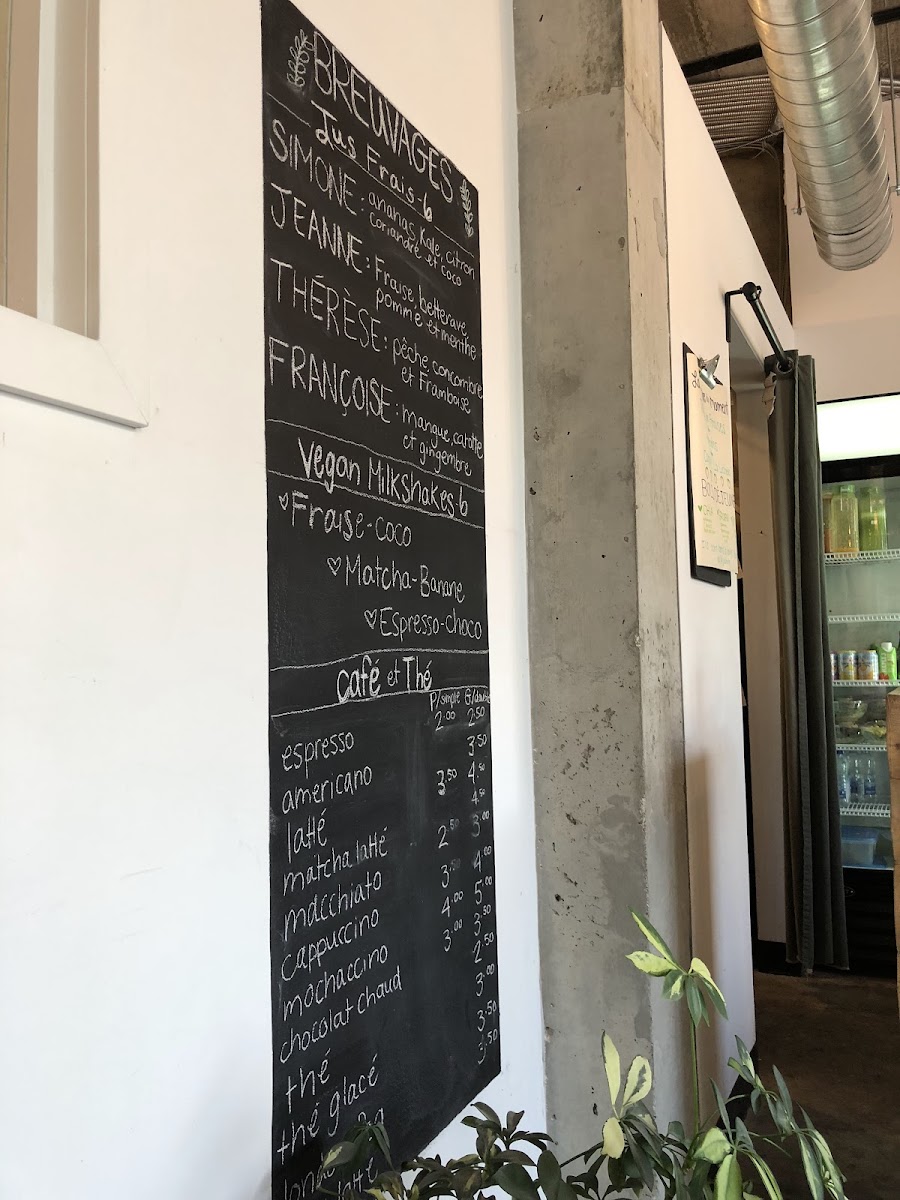 BREUVAGES
Jus Frais-6
SIMONE: ananas, Kale, citron
coriandre et coco
JEANNE: Fraise, betterave,
pomme et menthe
THÉRÈSE: pêche, concombre
et Framboise
FRANÇOISE: mangue, carotte
et gingembre
Vegan Milkshakes-6
Fraise-coco
Matcha-Banane
Espresso-choco
café et Thé
P/simple G/double
espresso 2.00 2.50
americano 3.50
latté 3.50 4.50
matcha latté 4.50
macchiato 2.50 3.00
cappuccino 3.50 4.00
mochaccino 4.00 5.00
chocolat chaud 3.00 3.50
thé 2.50
thé glacé 3.00
3.50
latté 3.50